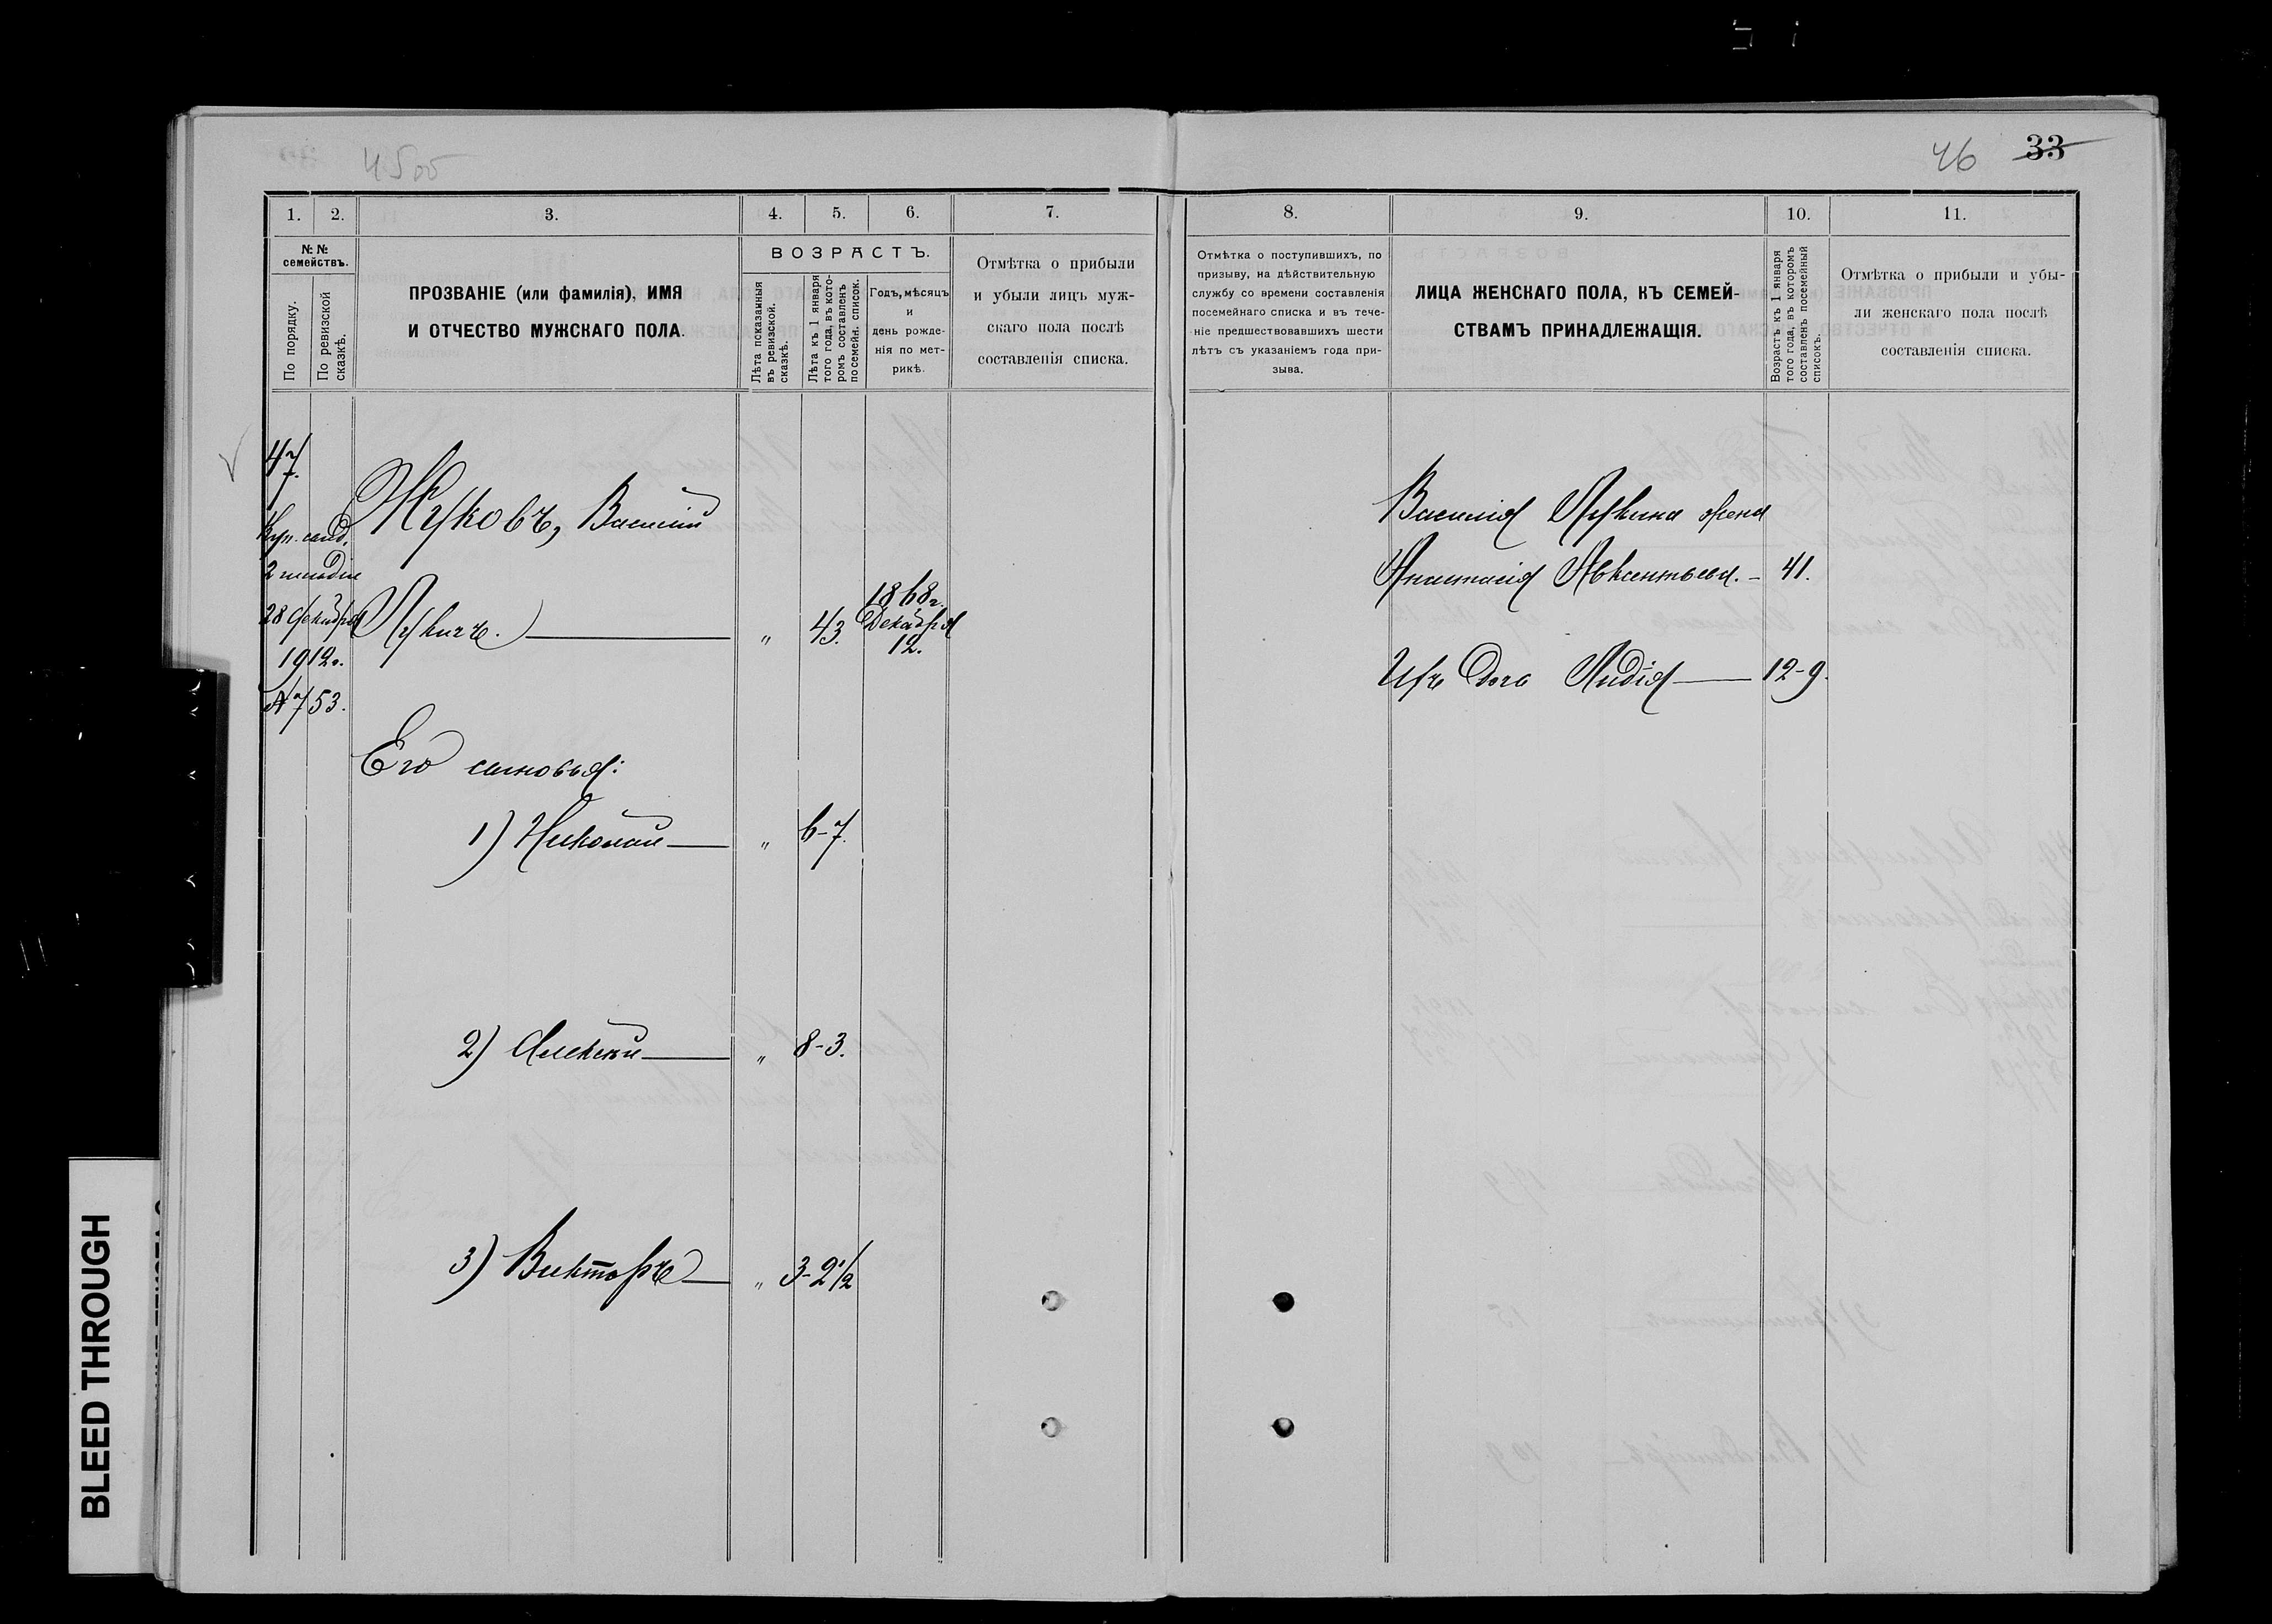 4500
46 33
1. 2. 3. 4. 5. 6. 7.
№№ семействъ.
По порядку.
По ревизской сказкѣ.
ПРОЗВАНІЕ (или фамилія), ИМЯ
И ОТЧЕСТВО МУЖСКАГО ПОЛА.
ВОЗРАСТЪ.
Лѣта показанныя
въ ревизской.
сказкѣ.
Лѣта къ 1 января
того года, въ кото-
ромъ составленъ
посемейн. список.
Годъ, мѣсяцъ
и
день рожде-
нія по мет-
рикѣ.
Отмѣтка о прибыли
и убыли лицъ муж-
скаго пола послѣ
составленія списка.
8. 9. 10. 11.
Отмѣтка о поступившихъ, по
призыву, на дѣйствительную
службу со времени составленія
посемейнаго списка и въ тече-
ніе предшествовавшихъ шести
лѣтъ съ указаніемъ года при-
зыва.
ЛИЦА ЖЕНСКАГО ПОЛА, КЪ СЕМЕЙ-
СТВАМЪ ПРИНАДЛЕЖАЩІЯ.
Возрастъ къ 1 января
того года, въ которомъ
составленъ посемейный
списокъ.
Отмѣтка о прибыли и убы-
ли женскаго пола послѣ
составленія списка.
47.
Куп. канд.
2 гильдіи
28 декабря
1912 г.
№ 753.
Жуковъ, Василій
Лукичъ. " 43. 1868 г.
Декабря
12.
Его сыновья:
1) Николай " 6-7.
2) Алексѣй " 8-3.
3) Викторъ " 3-2 1/2
Василія Лукича жена
Анастасія Авксентьева. - 41.
Ихъ дочь Лидія 12-9.
BLEED THROUGH